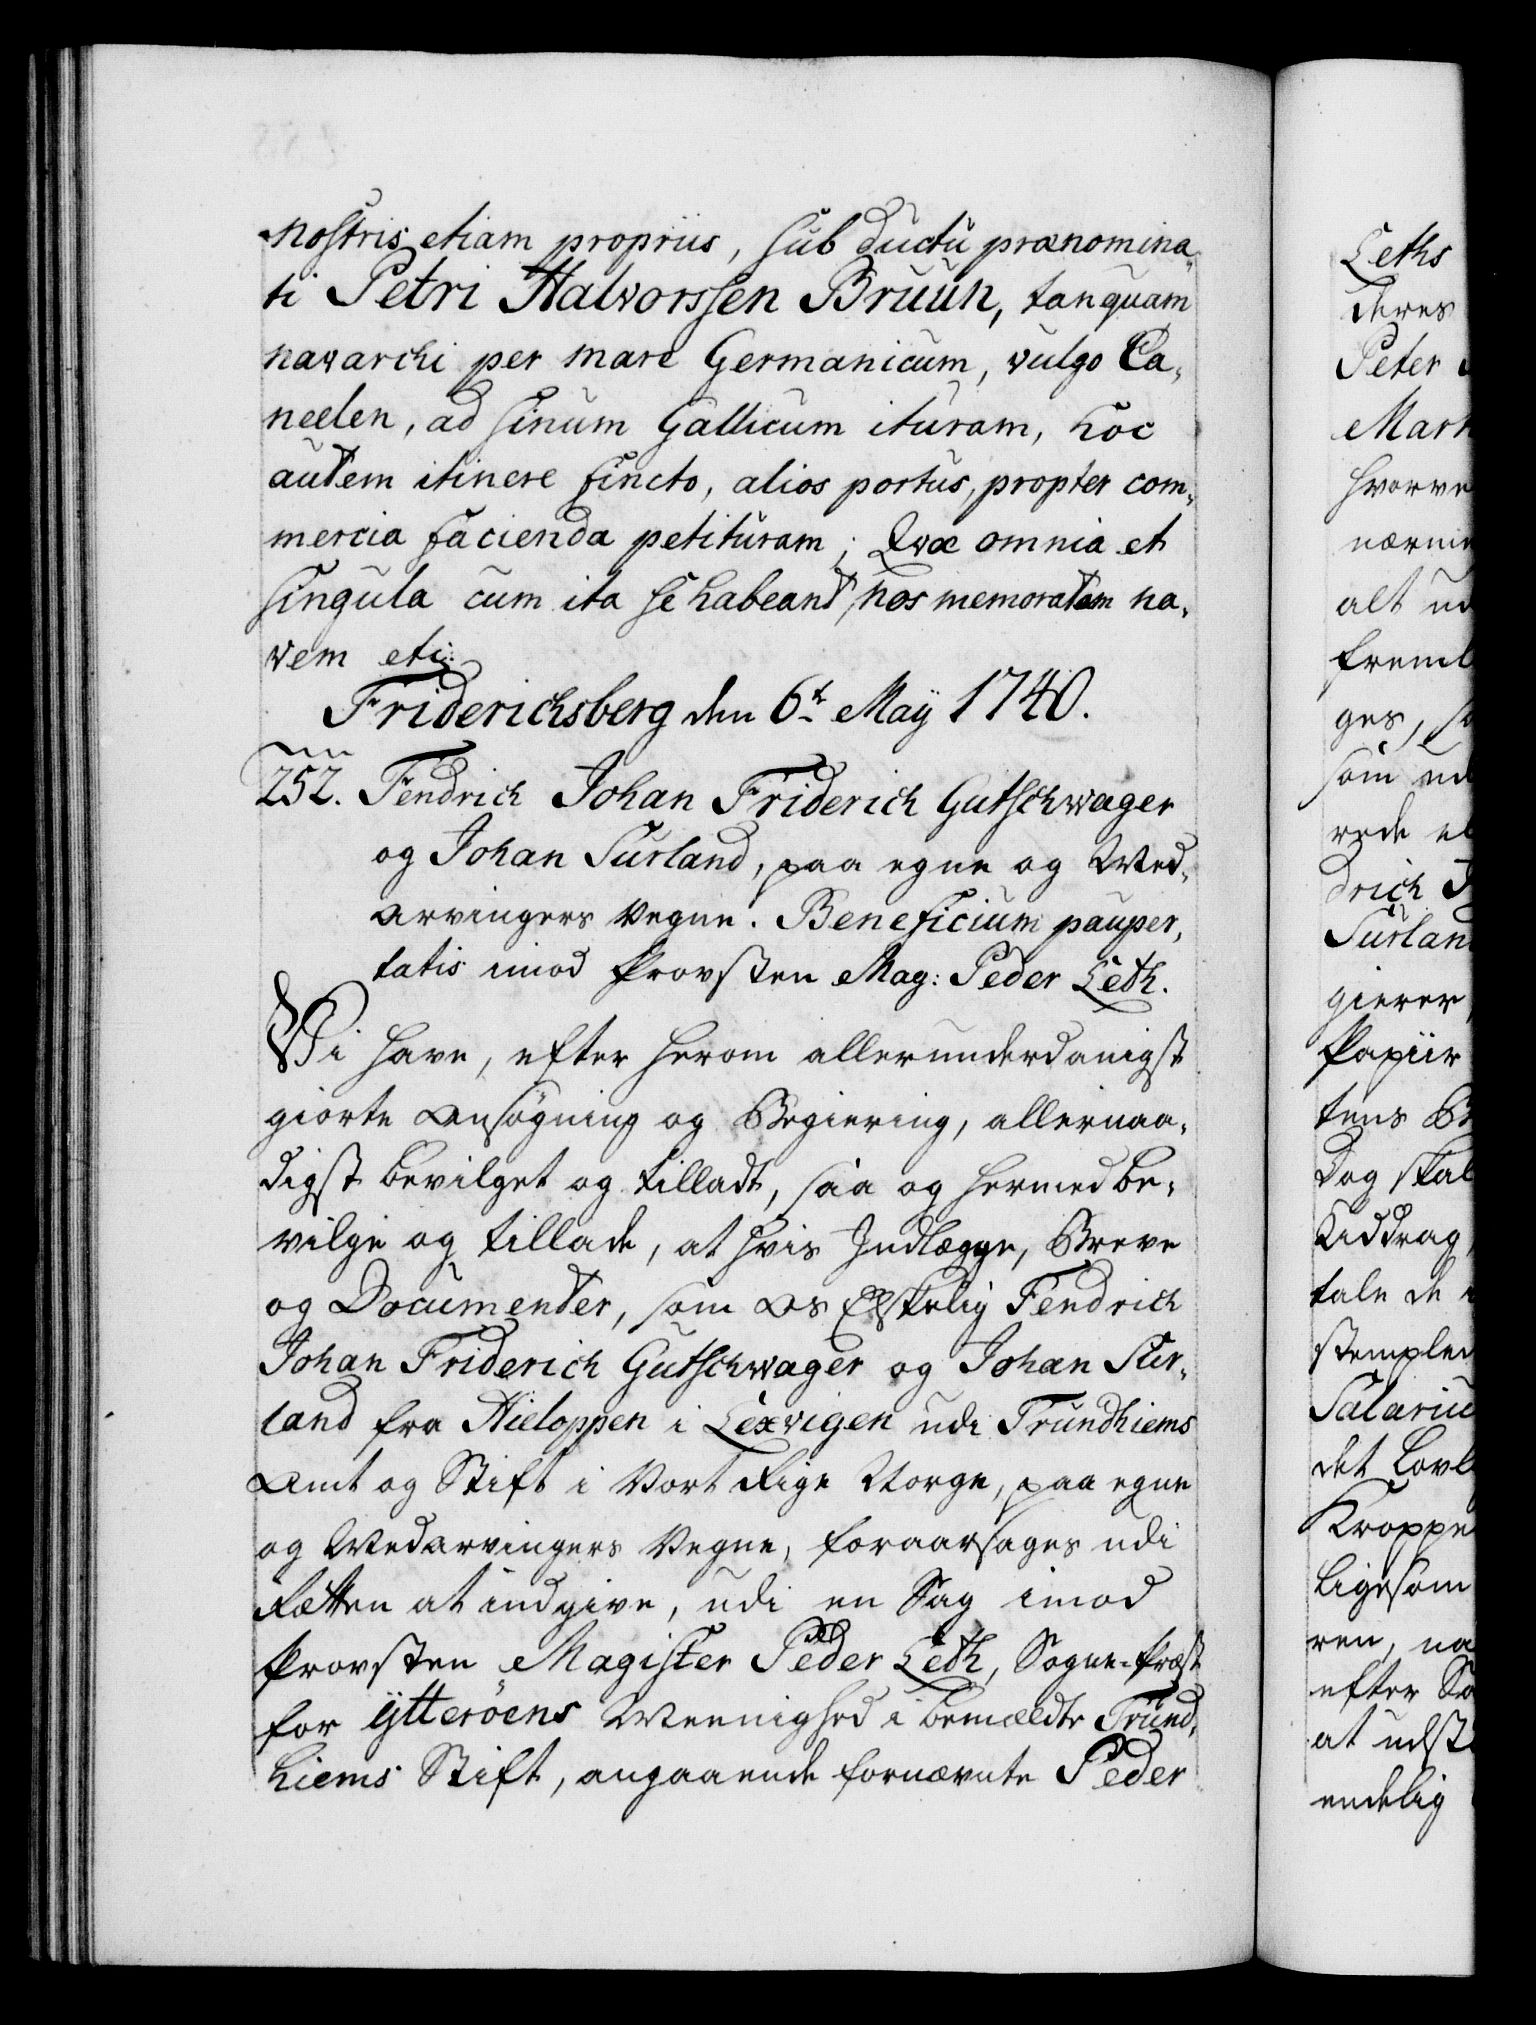 nostris etiam propriis, sub ductu prænomina-
ti Petri Halvorssen Bruun, tanquam
navarchi per mare Germanicum, vulgo Ca-
neelen, ad sinum Gallicum ituram, hoc
autem itinere fincto, alios portus, propter com-
mercia facienda petituram; Qvæ omnia et
singula cum ita se habeant, nos memoratam na-
vem etc:
Friderichsberg den 6te Maÿ 1740.
252. Fendrich Johan Friderich Gutschwager
og Johan Surland, paa egne og Med-
arvingers Vegne. Beneficium pauper-
tatis imod Provsten Mag: Peder Leth.
Vi have, efter herom allerunderdanigst
giorte Ansøgning og Begiering, allernaa-
digst bevilget og tilladt, saa og hermed be-
vilge og tillade, at hvis Indlægge, Breve
og Documenter, som Os Elskelig Fendrich
Johan Friderich Gutschwager og Johan Sur-
land fra Hieloppen i Lexvigen udi Trundhiems
Amt og Stift i Vort Rige Norge, paa egne
og Medarvingers Vegne, foraarsages udi
Retten at indgive, udi en Sag imod
Provsten Magister Peder Leth, Sogne-Præst
for Ÿtterøens Meenighed i bemeldte Trund-
hiems Stift, angaaende fornævnte Peder
Leths
deres
Peter
hvorve
alt ud
ges, so
som ud
rede el
drich
Surlan
gierer
Papiir
tens
Dog skal
Uddrag
tale de
Salariu
det lovl
Kroppe
ligesom
ren, na
efter So
at udst
endelig